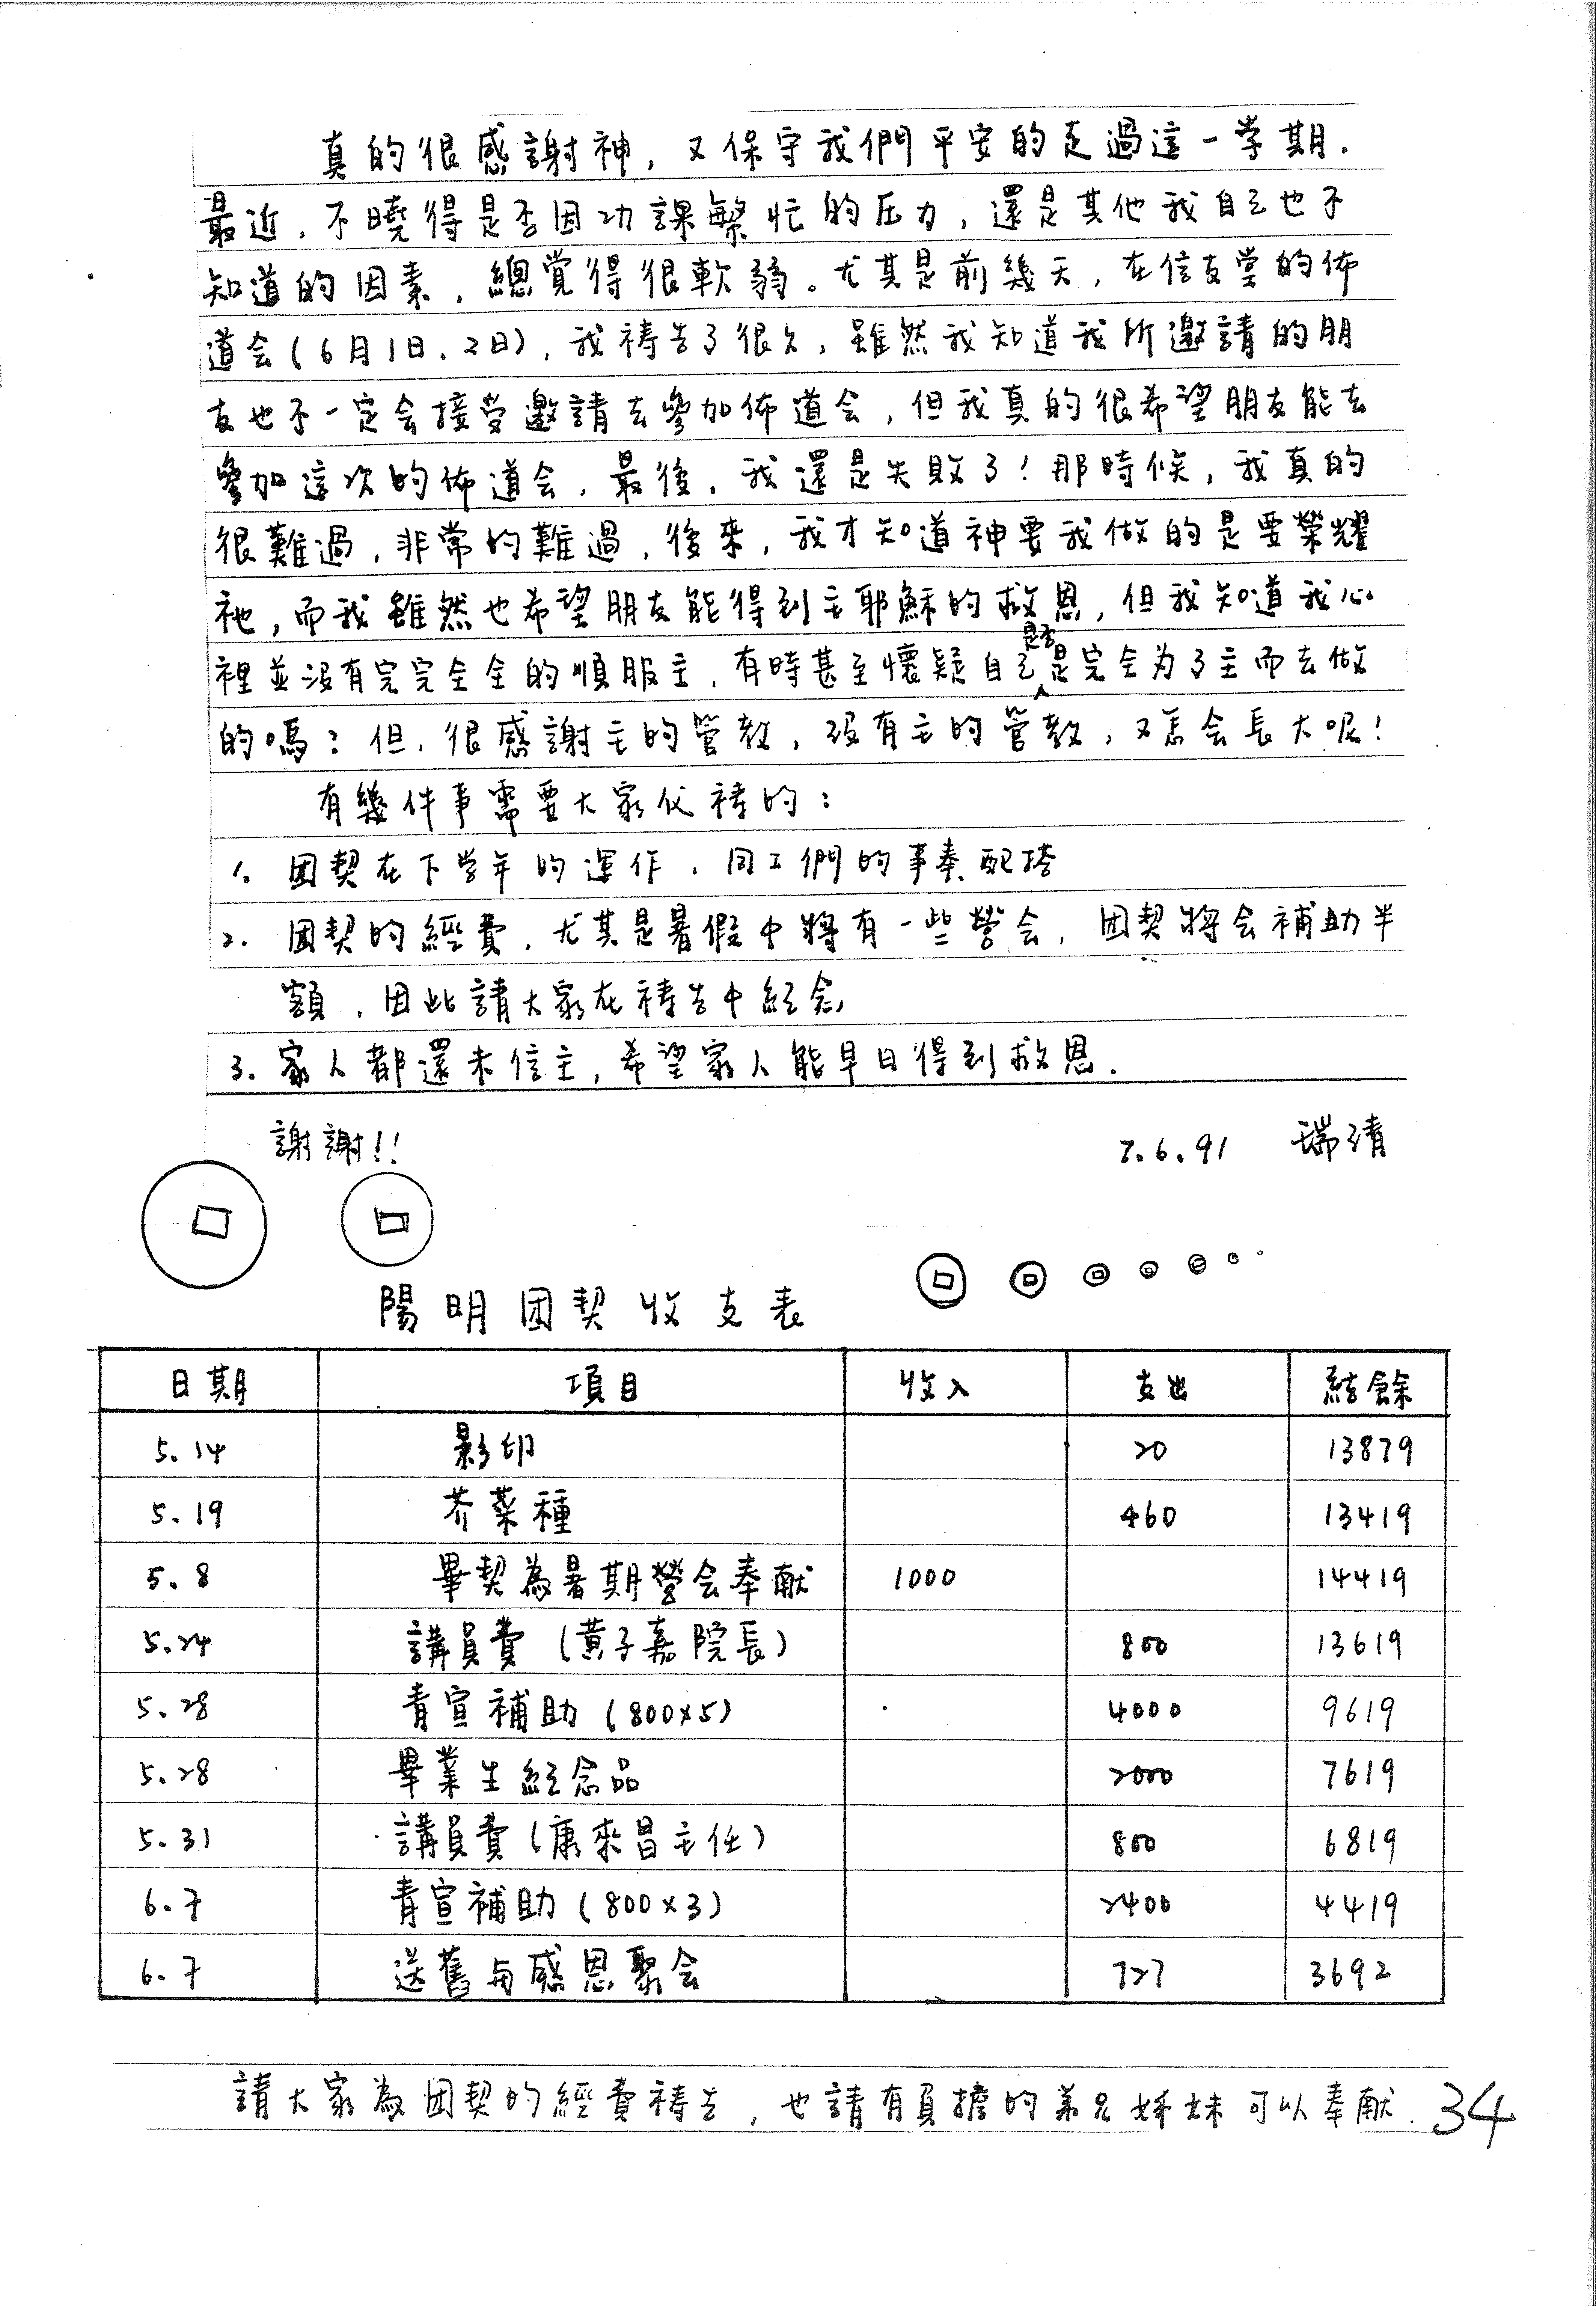 真的很感謝神，又保守我們平安的走過這一学期．
最近，不曉得是否因功課繁忙的压力，還是其他我自己也不
知道的因素，總覚得很軟弱。尤其是前幾天，在信友堂的佈
道会(6月1日、2日)，我禱告了很久，雖然我知道我所邀請的朋
友也不一定会接受邀請去參加佈道会，但我真的很希望朋友能去
參加這次的佈道会，最後，我還是失敗了！那時候，我真的
很難過，非常的難過，後來，我才知道神要我做的是要榮耀
祂，而我雖然也希望朋友能得到主耶穌的救恩，但我知道我心
裡並沒有完完全全的順服主，有時甚至懷疑自己是否是完全为了主而去做
的嗎？但，很感謝主的管教，沒有主的管教，又怎会長大呢！
有幾件事需要大家代禱的：
1. 团契在下学年的運作，同工們的事奉配搭
2. 团契的經費，尤其是暑假中將有一些營会，团契將会補助半
額，因此請大家在禱告中紀念
3. 家人都還未信主，希望家人能早日得到救恩．
謝謝!!
7.6.91 瑞靖
陽明团契收支表
日期 項目 收入 支出 結餘
5.14 影印 20 13879
5.19 芥菜種 460 13419
5.8 畢契為暑期營会奉献 1000 14419
5.24 講員費（黄子嘉院長） 800 13619
5.28 青宣補助（800x5） 4000 9619
5.28 畢業生紀念品 2000 7619
5.31 講員費（康來昌主任） 800 6819
6.7 青宣補助（800x3） 2400 4419
6.7 送舊与感恩聚会 727 3692
請大家為团契的經費禱告，也請有負擔的弟兄姊妹可以奉献．
34